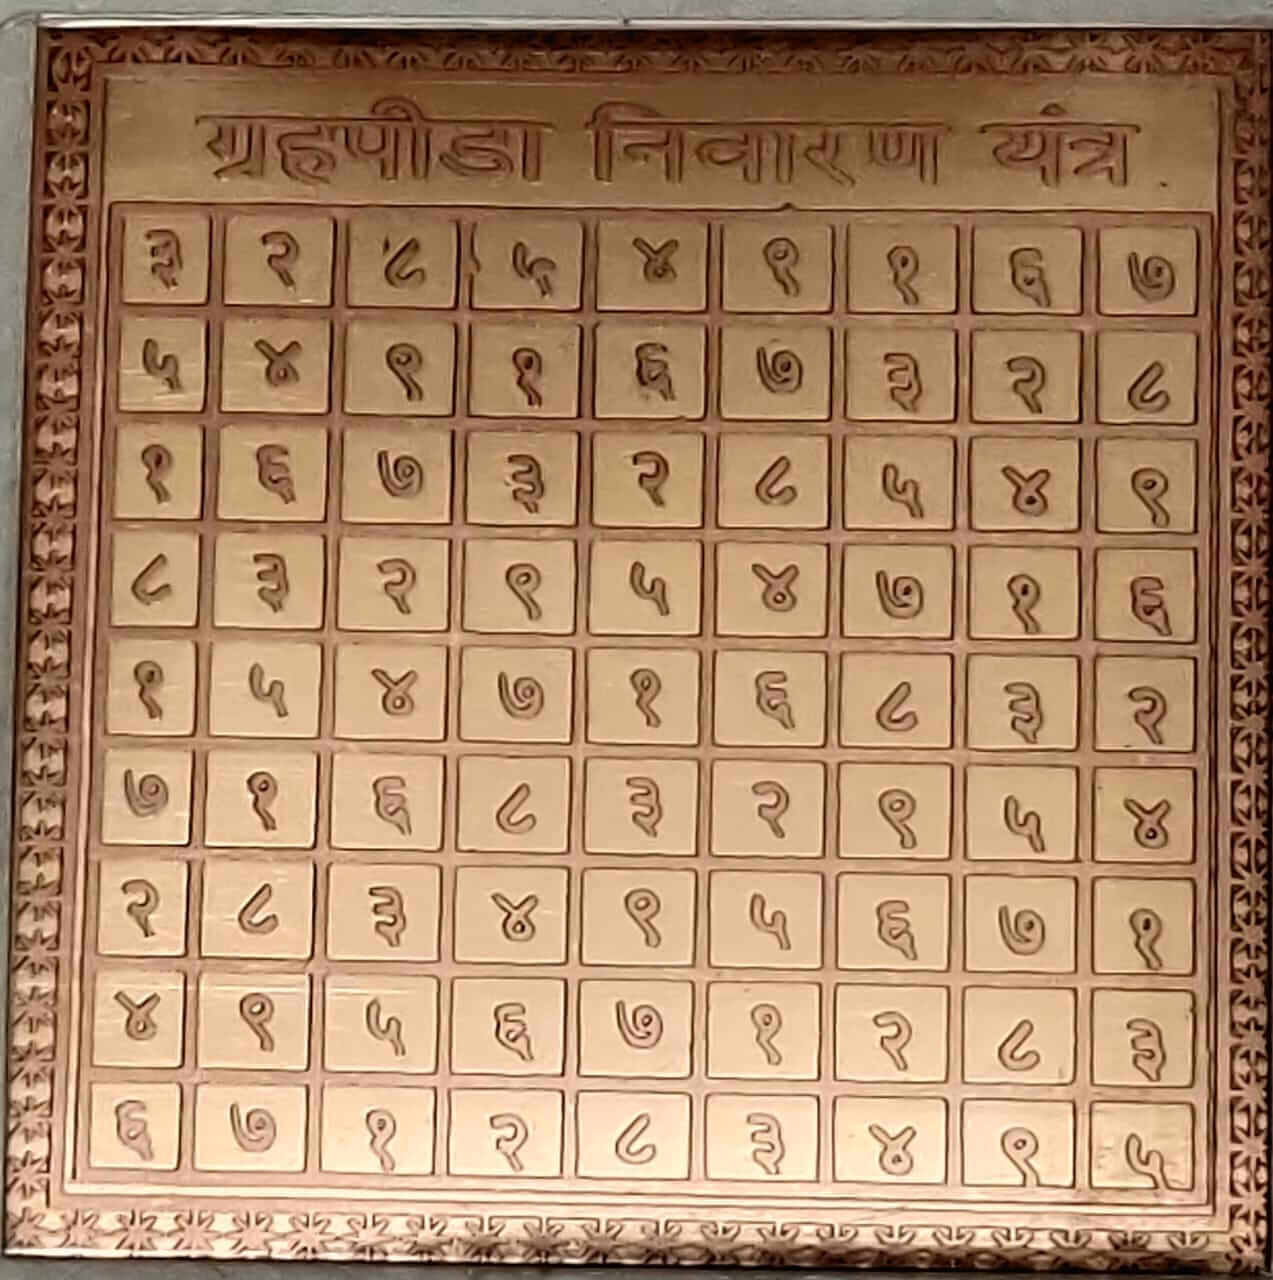 ग्रहपीडा निवारण यंत्र
३ २ ८ ५ ४ ९ १ ६ ७
५ ४ ९ १ ६ ७ ३ २ ८
१ ६ ७ ३ २ ८ ५ ४ ९
८ ३ २ ९ ५ ४ ७ १ ६
१ ५ ४ ७ १ ६ ८ ३ २
७ १ ६ ८ ३ २ ९ ५ ४
२ ८ ३ ४ ९ ५ ६ ७ १
४ ९ ५ ६ ७ १ २ ८ ३
६ ७ १ २ ८ ३ ४ ९ ५